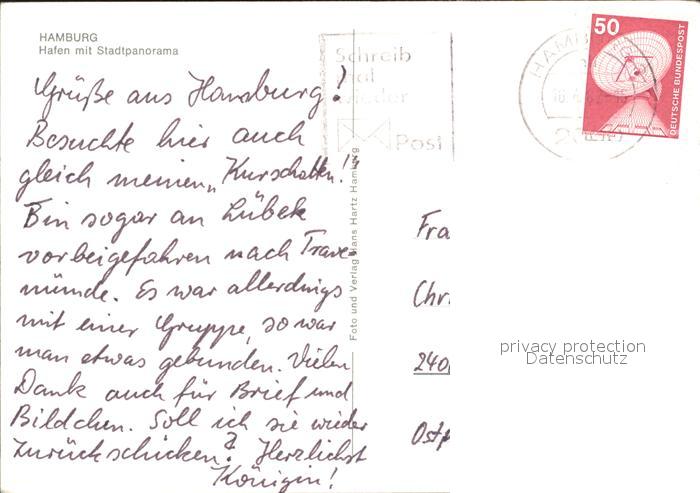 HAMBURG
Hafen mit Stadtpanorama
Schreib
mal
wieder
Post
50
DEUTSCHE BUNDESPOST
HAMB
Grüße aus Hamburg!
Besuchte hier auch
gleich meinen „Kurschatten!"
Bin sogar an Lübek
vorbeigefahren nach Trave-
münde. Es war allerdings
mit einer Gruppe, so war
man etwas gebunden. Vielen
Dank auch für Brief und
Bildchen. Soll ich sie wieder
zurückschicken? Herzlichst
Königin!
Foto und Verlag Hans Hartz Hamburg
Fra
Chr
240
Ostp
privacy protection
Datenschutz